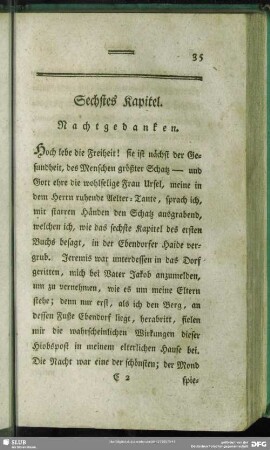 35
Sechstes Kapitel.
Nachtgedanken.
Hoch lebe die Freiheit! sie ist nächst der Ge-
sundheit, des Menschen größter Schatz — und
Gott ehre die wohlselige Frau Ursel, meine in
dem Herrn ruhende Aelter-Tante, sprach ich,
mir starren Händen den Schatz ausgrabend,
welchen ich, wie das sechste Kapitel des ersten
Buchs besagt, in der Ebendorfer Haide ver-
grub. Jeremis war unterdessen in das Dorf
geritten, mich bey Vater Jakob anzumelden,
um zu vernehmen, wie es um meine Eltern
stehe; denn nur erst, als ich den Berg, an
dessen Fuße Ebendorf liegt, herabritt, fielen
mir die wahrscheinlichen Wirkungen dieser
Hiobspost in meinem elterlichen Hause bei.
Die Nacht war eine der schönsten; der Mond
C 2
spie-
SLUB
DFG